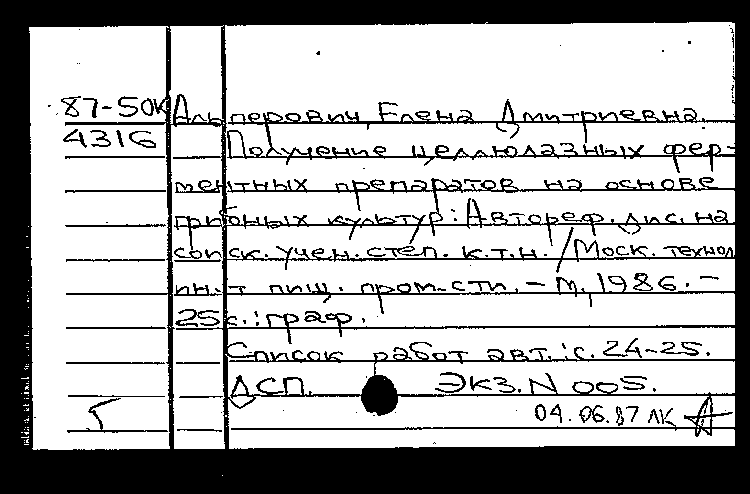 87-50К Альперович, Елена Дмитриевна.
4316 Получение целлюлазных фер-
ментных препаратов на основе
грибных культур: Автореф. дис. на
соиск. учен. степ. к.т.н. /Моск. технол
ин-т пищ. пром-сти. - М., 1986. -
25с.: граф.
Список работ авт.: с. 24-25.
ДСП. Экз. N 005.
04.06.87 ЛК